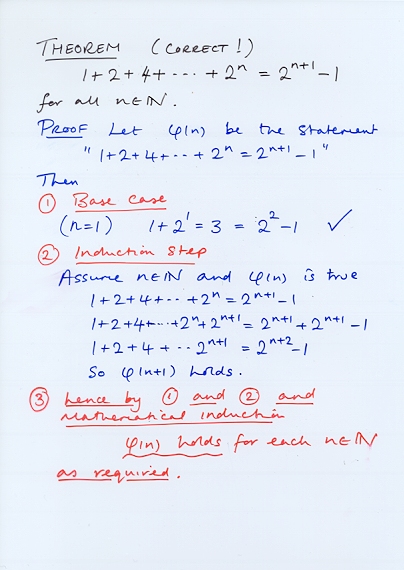 THEOREM (CORRECT!)
1+2+4+ ⋯ + 2ⁿ = 2ⁿ⁺¹ − 1
for all n∈ℕ.
PROOF Let φ(n) be the statement
"1+2+4+ ⋯ + 2ⁿ = 2ⁿ⁺¹ − 1"
Then
① Base case
(n=1) 1+2¹ = 3 = 2² − 1 ✓
② Induction step
Assume n∈ℕ and φ(n) is true
1+2+4+ ⋯ +2ⁿ = 2ⁿ⁺¹ − 1
1+2+4+ ⋯ +2ⁿ+2ⁿ⁺¹ = 2ⁿ⁺¹ + 2ⁿ⁺¹ − 1
1+2+4+ ⋯ 2ⁿ⁺¹ = 2ⁿ⁺² − 1
So φ(n+1) holds.
③ hence by ① and ② and
Mathematical induction
φ(n) holds for each n∈ℕ
as required.